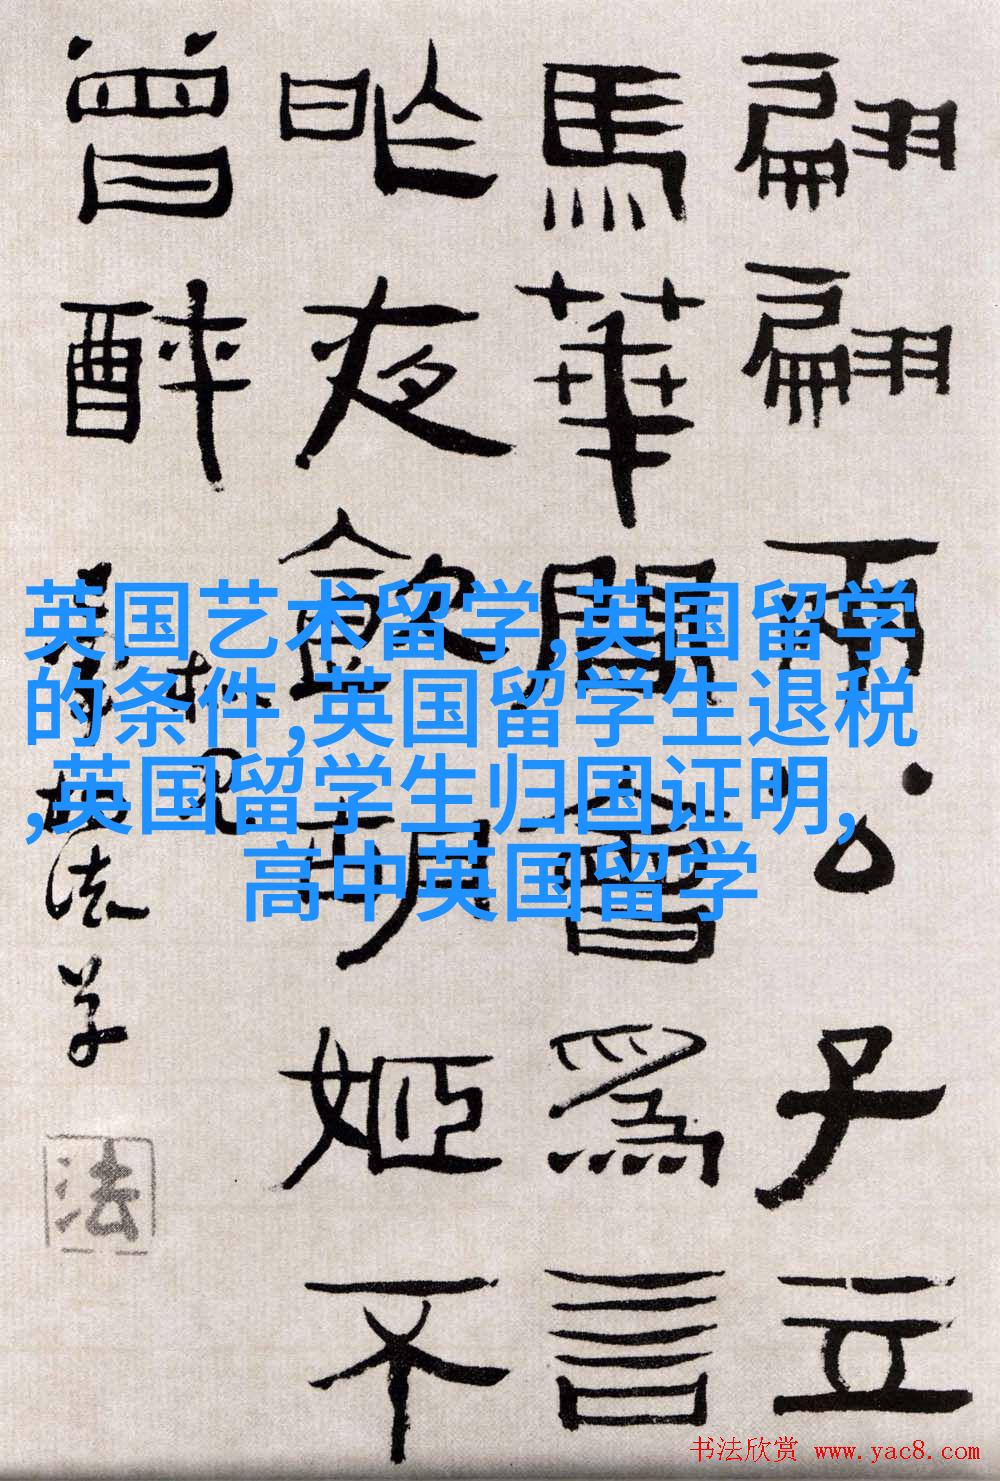 翩翩兩公子立
馬華間會爲言
昨夜飲胡姬不
曾醉
法
英国艺术留学,英国留学
的条件,英国留学生退税
,英国留学生归国证明,
高中英国留学
书法欣赏 www.yac8.com